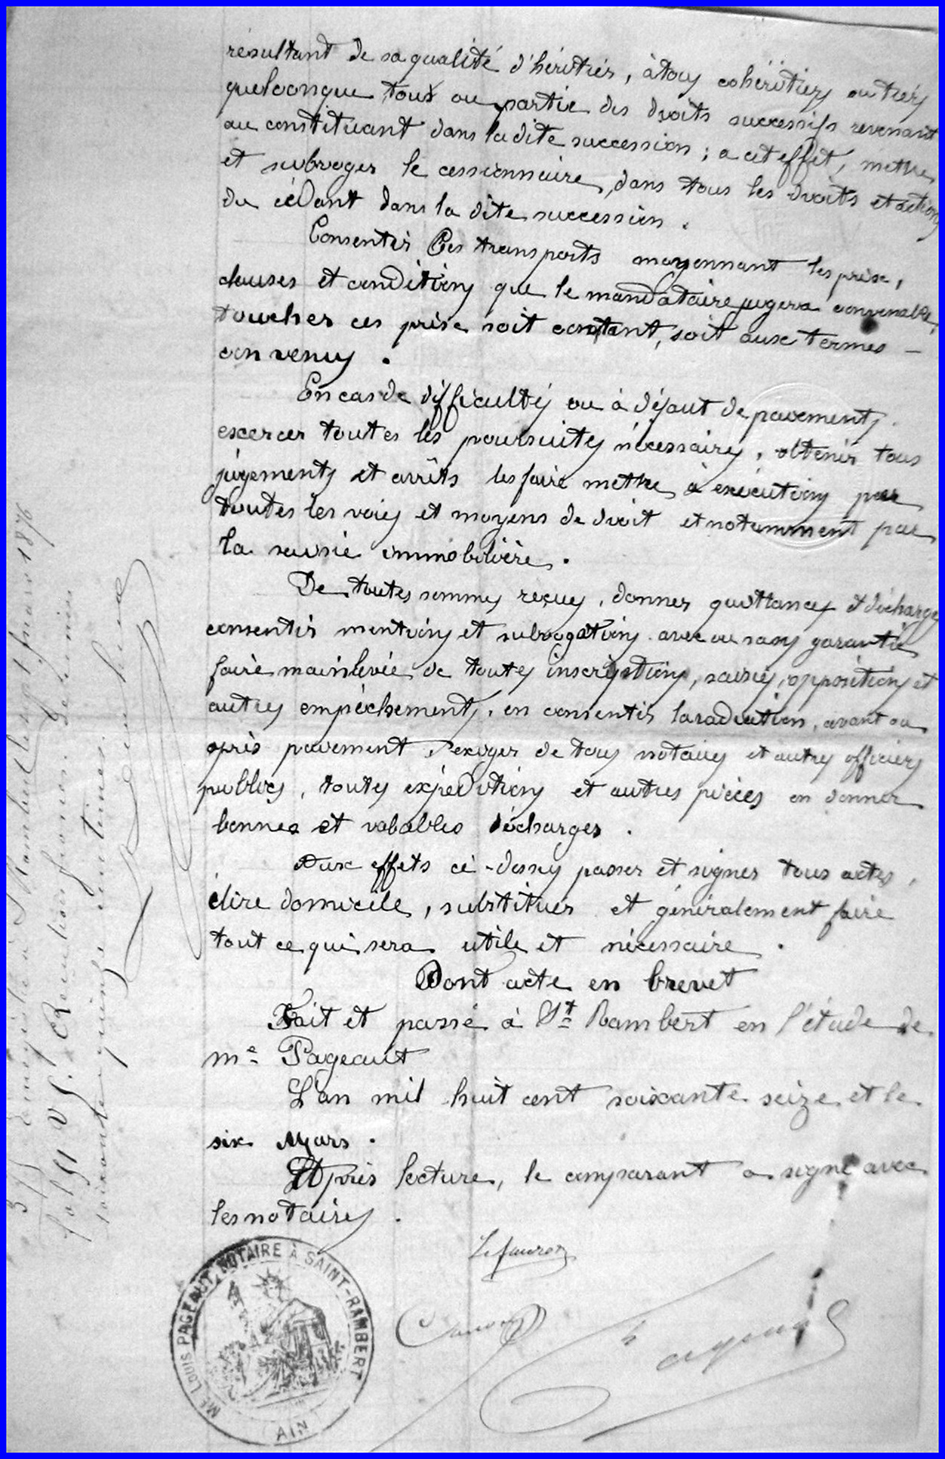 résultant de sa qualité d'héritier, à tous cohéritiers ou tiers
quelconque tous ou partie des droits successifs revenant
au constituant dans la dite succession ; a cet effet, mettre
et subroger le cessionnaire, dans tous les droits et actions
du cédant dans la dite succession.
Consentir Ces transports moyennant les prise,
clauses et conditions que le mandataire jugera convenable,
toucher ces prise soit contant, soit aux termes –
convenus.
En cas de difficultés ou à défaut de payements
exercer toutes les poursuites nécessaires, obtenir tous
jugements et arrêts les faire mettre à exécutions par
toutes les voies et moyens de droit et notamment par
la saisie immobilière.
De toutes sommes reçues, donner quittances et décharge
consentir mentions et subrogations avec ou sans garantie
faire mainlevée de toutes inscriptions, saisies, oppositions et
autres empêchements, en consentir la radiation, avant ou
après payement, exiger de tous notaires et autres officiers
publics, toutes expéditions et autres pièces en donner
bonnes et valables décharges.
Aux effets ci-dessus passer et signer tous actes,
élire domicile, substituer et généralement faire
tout ce qui sera utile et nécessaire.
Dont acte en brevet
Fait et passé à St Rambert en l'étude de
me Pageaut
L'an mil huit cent soixante seize et le
six Mars.
Et après lecture, le comparant a signé avec
les notaires.
Pageaut
ME LOUIS PAGEAUT, NOTAIRE À SAINT-RAMBERT
AIN
Enregistré à St Rambert le sept mars 1876
Reçu trois francs. décimes
soixante quinze centimes.